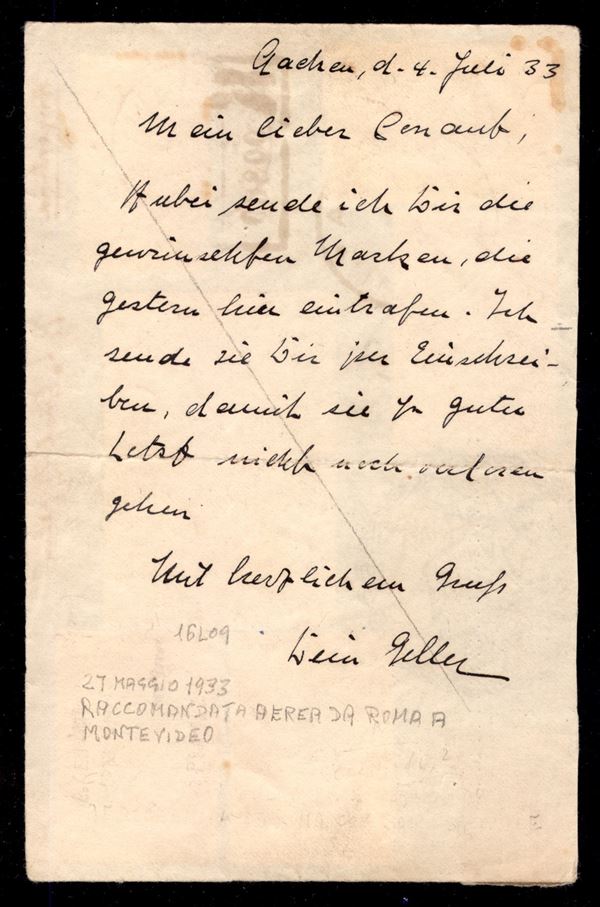 Aachen, d. 4. Juli 33
Mein lieber
Anbei sende ich Dir die
gewünschten Marken, die
gestern hier eintrafen. Ich
sende sie Dir per Einschrei-
ben, damit sie zu guter
Letzt nicht noch verloren
gehen
Mit herzlichem Gruß
Dein Geller
16L09
27 MAGGIO 1933
RACCOMANDATA AEREA DA ROMA A
MONTEVIDEO